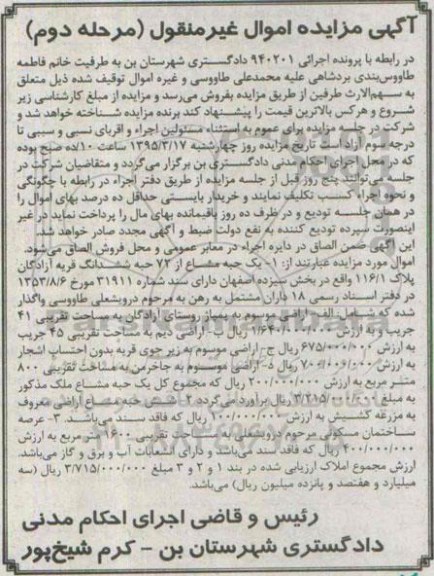 آگهی مزایده اموال غیرمنقول (مرحله دوم)
در رابطه با پرونده اجرائی ۹۴۰۲۰۱ دادگستری شهرستان بن به طرفیت خانم فاطمه
طاووس‌بندی بردشاهی علیه محمدعلی طاووسی و غیره اموال توقیف شده ذیل متعلق
به سهم‌الارث طرفین از طریق مزایده بفروش می‌رسد و مزایده از مبلغ کارشناسی زیر
شروع و هرکس بالاترین قیمت را پیشنهاد کند برنده مزایده شناخته خواهد شد و
شرکت در جلسه مزایده برای عموم به استثناء مسئولین اجراء و اقربای نسبی و سببی تا
درجه سوم آزاد است تاریخ مزایده روز چهارشنبه ۱۳۹۵/۳/۱۷ ساعت ۱۰/ده صبح بوده
که در محل اجرای احکام مدنی دادگستری بن برگزار می‌گردد و متقاضیان شرکت در
جلسه می‌توانند پنج روز قبل از جلسه مزایده از طریق دفتر اجراء در رابطه با چگونگی
و نحوه اجراء کسب تکلیف نمایند و خریدار بایستی حداقل ده درصد بهای اموال را
در همان جلسه تودیع و در ظرف ده روز باقیمانده بهای مال را پرداخت نماید در غیر
اینصورت سپرده تودیع کننده به نفع دولت ضبط و آگهی مجدد صادر خواهد شد.
این آگهی ضمن الصاق در دایره اجراء در معابر عمومی و محل فروش الصاق می‌شود.
اموال مورد مزایده عبارتند از: ۱- یک حبه مشاع از ۷۲ حبه ششدانگ قریه آزادگان
پلاک ۱۱۶/۱ واقع در بخش سیزده اصفهان دارای سند شماره ۳۱۹۱۱ مورخ ۱۳۵۳/۸/۶
در دفتر اسناد رسمی ۱۸ داران مشتمل به رهن به مرحوم درویشعلی طاووسی واگذار
شده که شامل: الف- اراضی موسوم به پمپاژ روستای آزادگان به مساحت تقریبی ۴۱
جریب و به ارزش ۱/۶۴۰/۰۰۰/۰۰۰ ریال ب- اراضی دیم به مساحت تقریبی ۴۵ جریب
به ارزش ۶۷۵/۰۰۰/۰۰۰ ریال ج- اراضی موسوم به زیر جوی قریه بدون احتساب اشجار
به ارزش ۷۰۰/۰۰۰/۰۰۰ ریال د- اراضی موسوم به جاخرمن به مساحت تقریبی ۸۰۰
متر مربع به ارزش ۲۰۰/۰۰۰/۰۰۰ ریال که مجموع کل یک حبه مشاع ملک مذکور
به مبلغ ۳/۲۱۵/۰۰۰/۰۰۰ ریال برآورد می‌گردد ۲- شش حبه مشاع اراضی معروف
به مزرعه کشیش به ارزش ۱۰۰/۰۰۰/۰۰۰ ریال که فاقد سند می‌باشد. ۳- عرصه
ساختمان مسکونی مرحوم درویشعلی به مساحت تقریبی ۱۶۰۰ متر مربع به ارزش
۴۰۰/۰۰۰/۰۰۰ ریال که فاقد سند می‌باشد و دارای انشعابات آب و برق و گاز می‌باشد.
ارزش مجموع املاک ارزیابی شده در بند ۱ و ۲ و ۳ مبلغ ۳/۷۱۵/۰۰۰/۰۰۰ ریال (سه
میلیارد و هفتصد و پانزده میلیون ریال) می‌باشد.
رئیس و قاضی اجرای احکام مدنی
دادگستری شهرستان بن - کرم شیخ‌پور